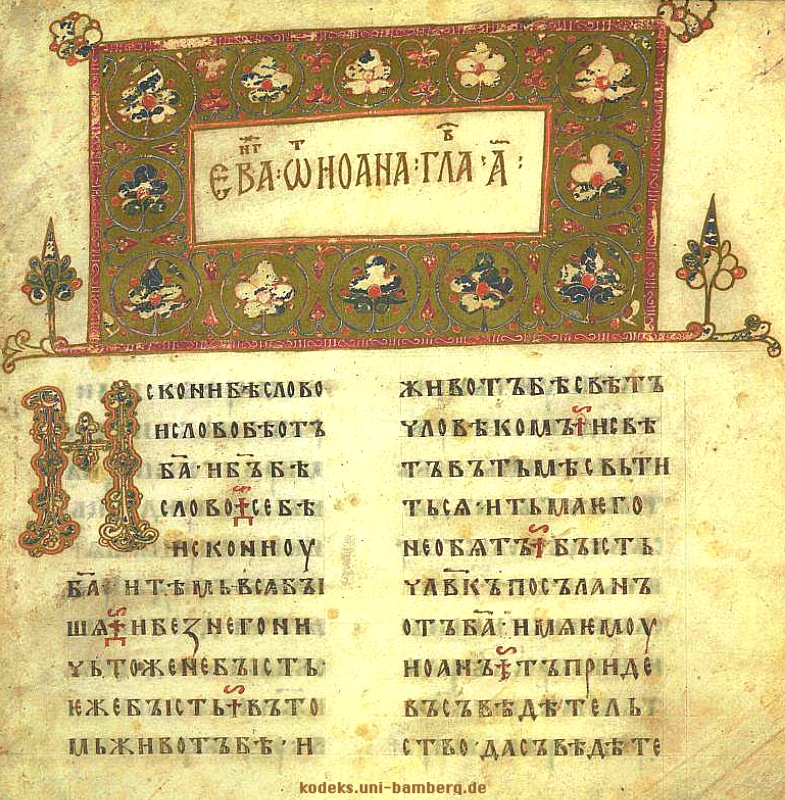 ЕВАНГ҃ · Ѿ ИОАНА · ГЛАВ · А҃ :
ИСКОНИБѢСЛОВО
ИСЛОВОБѢОТЪ
Б҃А · ИБ҃ЪБѢ
СЛОВО СЕБѢ
ИСКОНИОУ
Б҃А ИТѢМЬВСЯБЫ
ШЯ ИБЕЗНЕГОНИ
ЧЬТОЖЕНЕБЪІСТЬ ·
ѤЖЕБЪІСТЬ ВЪТО
МЬЖИВОТЪБѢ · И
ЖИВОТЪБѢСВѢТЪ
ЧЛОВѢКОМЪ ИСВѢ
ТЪВЪТЬМѢСВЬТИ
ТЬСЯ · ИТЬМАѤГО
НЕОБЯТЪ БЪІСТЬ
ЧЛ҃ВКЪПОСЪЛАНЪ
ОТЪБ҃А · ИМЯѤМОУ
ИОАНЪ ТЪПРИДЕ
ВЪСЪВѢДѢТЕЛЬ
СТВО · ДАСЪВѢДѢТЕ
kodeks.uni-bamberg.de